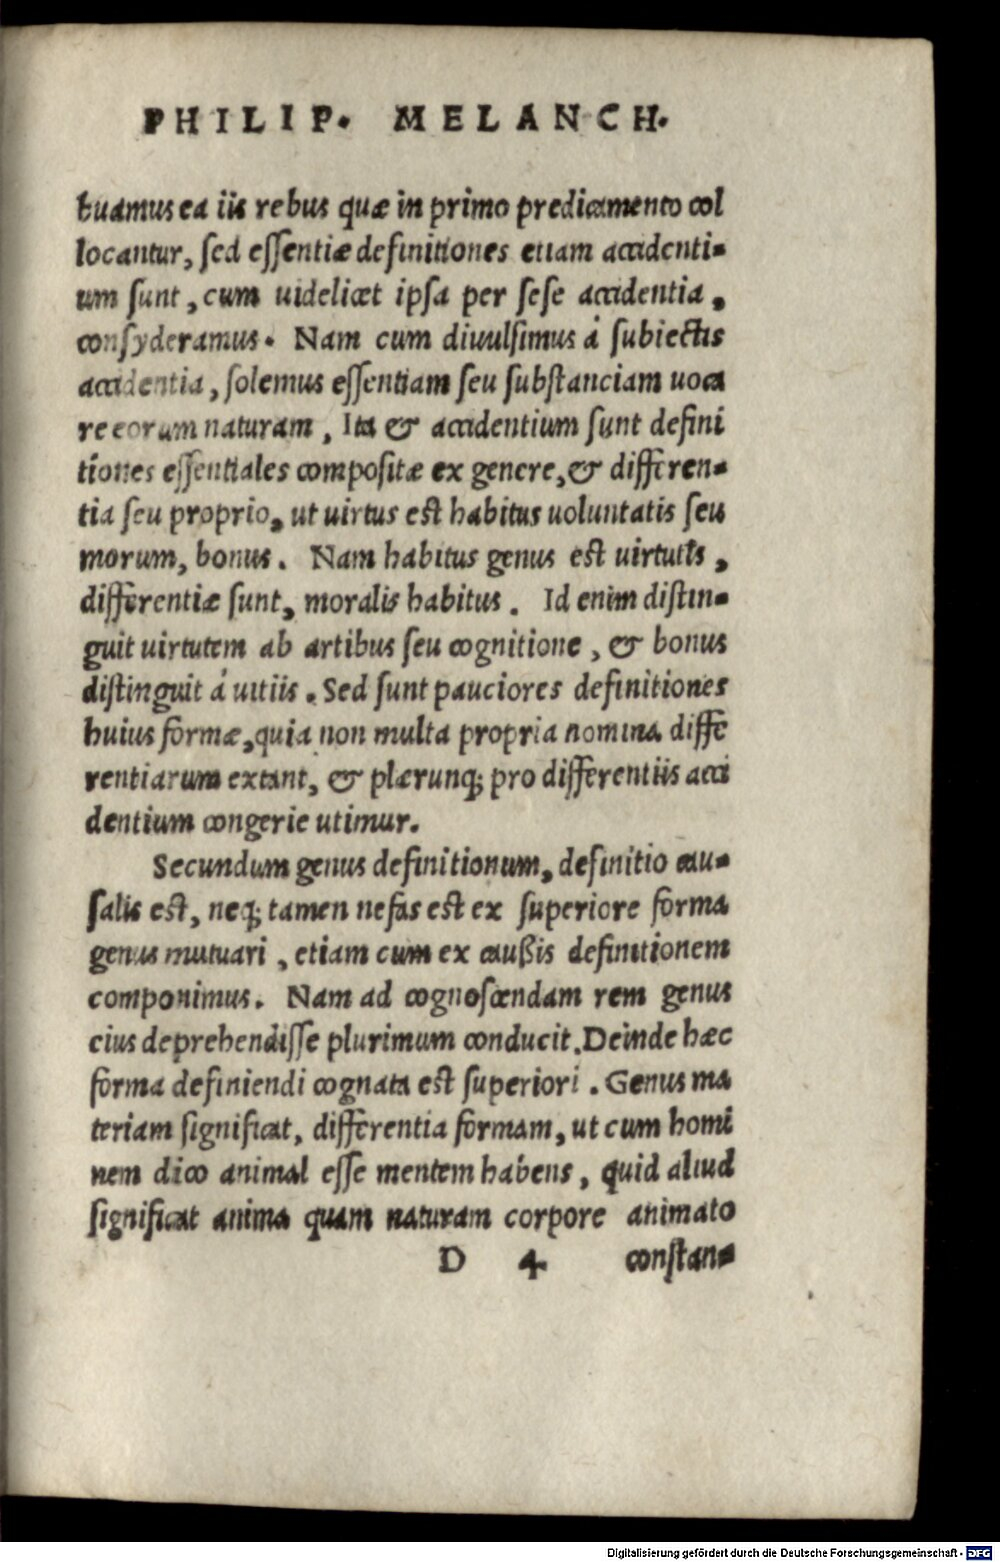 PHILIP. MELANCH.
buamus ea iis rebus quæ in primo predicamento col
locantur, ſed eſſentiæ definitiones etiam accidenti-
um ſunt, cum uidelicet ipſa per ſeſe accidentia,
conſyderamus. Nam cum diuulſimus á ſubiectis
accidentia, ſolemus eſſentiam ſeu ſubſtanciam uoca
re eorum naturam, Ita & accidentium ſunt defini
tiones eſſentiales compoſitæ ex genere, & differen-
tia ſeu proprio, ut uirtus est habitus uoluntatis ſeu
morum, bonus. Nam habitus genus est uirtutis,
differentiæ ſunt, moralis habitus. Id enim diſtin-
guit uirtutem ab artibus ſeu cognitione, & bonus
diſtinguit á uitiis. Sed ſunt pauciores definitiones
huius formæ, quia non multa propria nomina diffe
rentiarum extant, & plærunq; pro differentiis acci
dentium congerie utimur.
Secundum genus definitionum, definitio cau-
ſalis est, neq; tamen nefas est ex ſuperiore forma
genus mutuari, etiam cum ex cauſsis definitionem
componimus. Nam ad cognoſcendam rem genus
eius deprehendiſſe plurimum conducit. Deinde hæc
forma definiendi cognata est ſuperiori. Genus ma
teriam ſignificat, differentia formam, ut cum homi
nem dico animal eſſe mentem habens, quid aliud
ſignificat anima quam naturam corpore animato
D 4 conſtan-
Digitalisierung gefördert durch die Deutsche Forschungsgemeinschaft - DFG